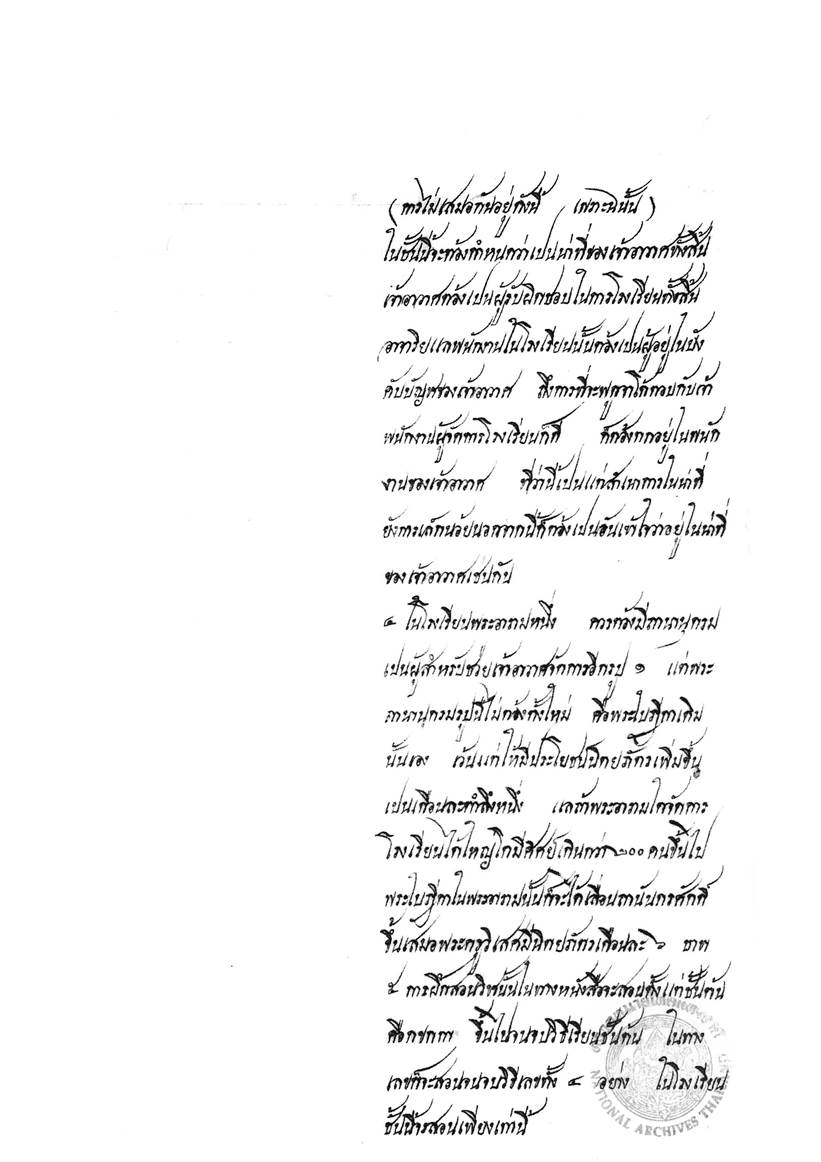 (การไม่เสมอกันอยู่ดังนี้ เฉภาะฉนั้น)
ในชั้นนี้จะต้องกำหนดว่าเปนน่าที่ของเจ้าอาวาศทั้งสิ้น
เจ้าอาวาศต้องเปนผู้รับผิดชอบในการโรงเรียนทั้งสิ้น
อาจาริยแลพนักงานในโรงเรียนนั้นต้องเปนผู้อยู่ในบัง
คับบัญชาของเจ้าอาวาศ ถึงการที่จะพูดจาโต้ตอบกับเจ้า
พนักงานผู้จัดการโรงเรียนก็ดี ก็ต้องตกอยู่ในพนัก
งานของเจ้าอาวาศ ที่ว่านี้เปนแต่สำเนาการในน่าที่
ยังการเล็กน้อยนอกจากนี้ก็ต้องเปนอันเข้าใจว่าอยู่ในน่าที่
ของเจ้าอาวาศเช่นกัน
๔ ในโรงเรียนพระอารามหนึ่ง ควรต้องมีถานานุกรม
เปนผู้สำหรับช่วยเจ้าอาวาศจัดการอีกรูป ๑ แต่พระ
ถานานุกรมรูปนี้ไม่ต้องตั้งใหม่ คือพระใบฎีกาเดิม
นั้นเอง เว้นแต่ให้มีประโยชน์นิตยภัตรเพิ่มขึ้น
เปนเดือนละตำลึงหนึ่ง แลถ้าพระอารามใดจัดการ
โรงเรียนได้ใหญ่โตมีศิศย์เกินกว่า ๒๐๐ คนขึ้นไป
พระใบฎีกาในพระอารามนั้นก็จะได้เลื่อนถานันดรศักดิ์
ขึ้นเสมอพระครูวิเสศมีนิตยภัตรเดือนละ ๖ บาท
๕ การฝึกสอนวิชานั้นในทางหนังสือจะสอนตั้งแต่ชั้นต้น
คือกขกกา ขึ้นไปจนจบวิธีเรียนชั้นต้น ในทาง
เลขก็จะสอนจนจบวิธีเลขทั้ง ๔ อย่าง ในโรงเรียน
ชั้นนี้จะสอนเพียงเท่านี้
NATIONAL ARCHIVES THAI